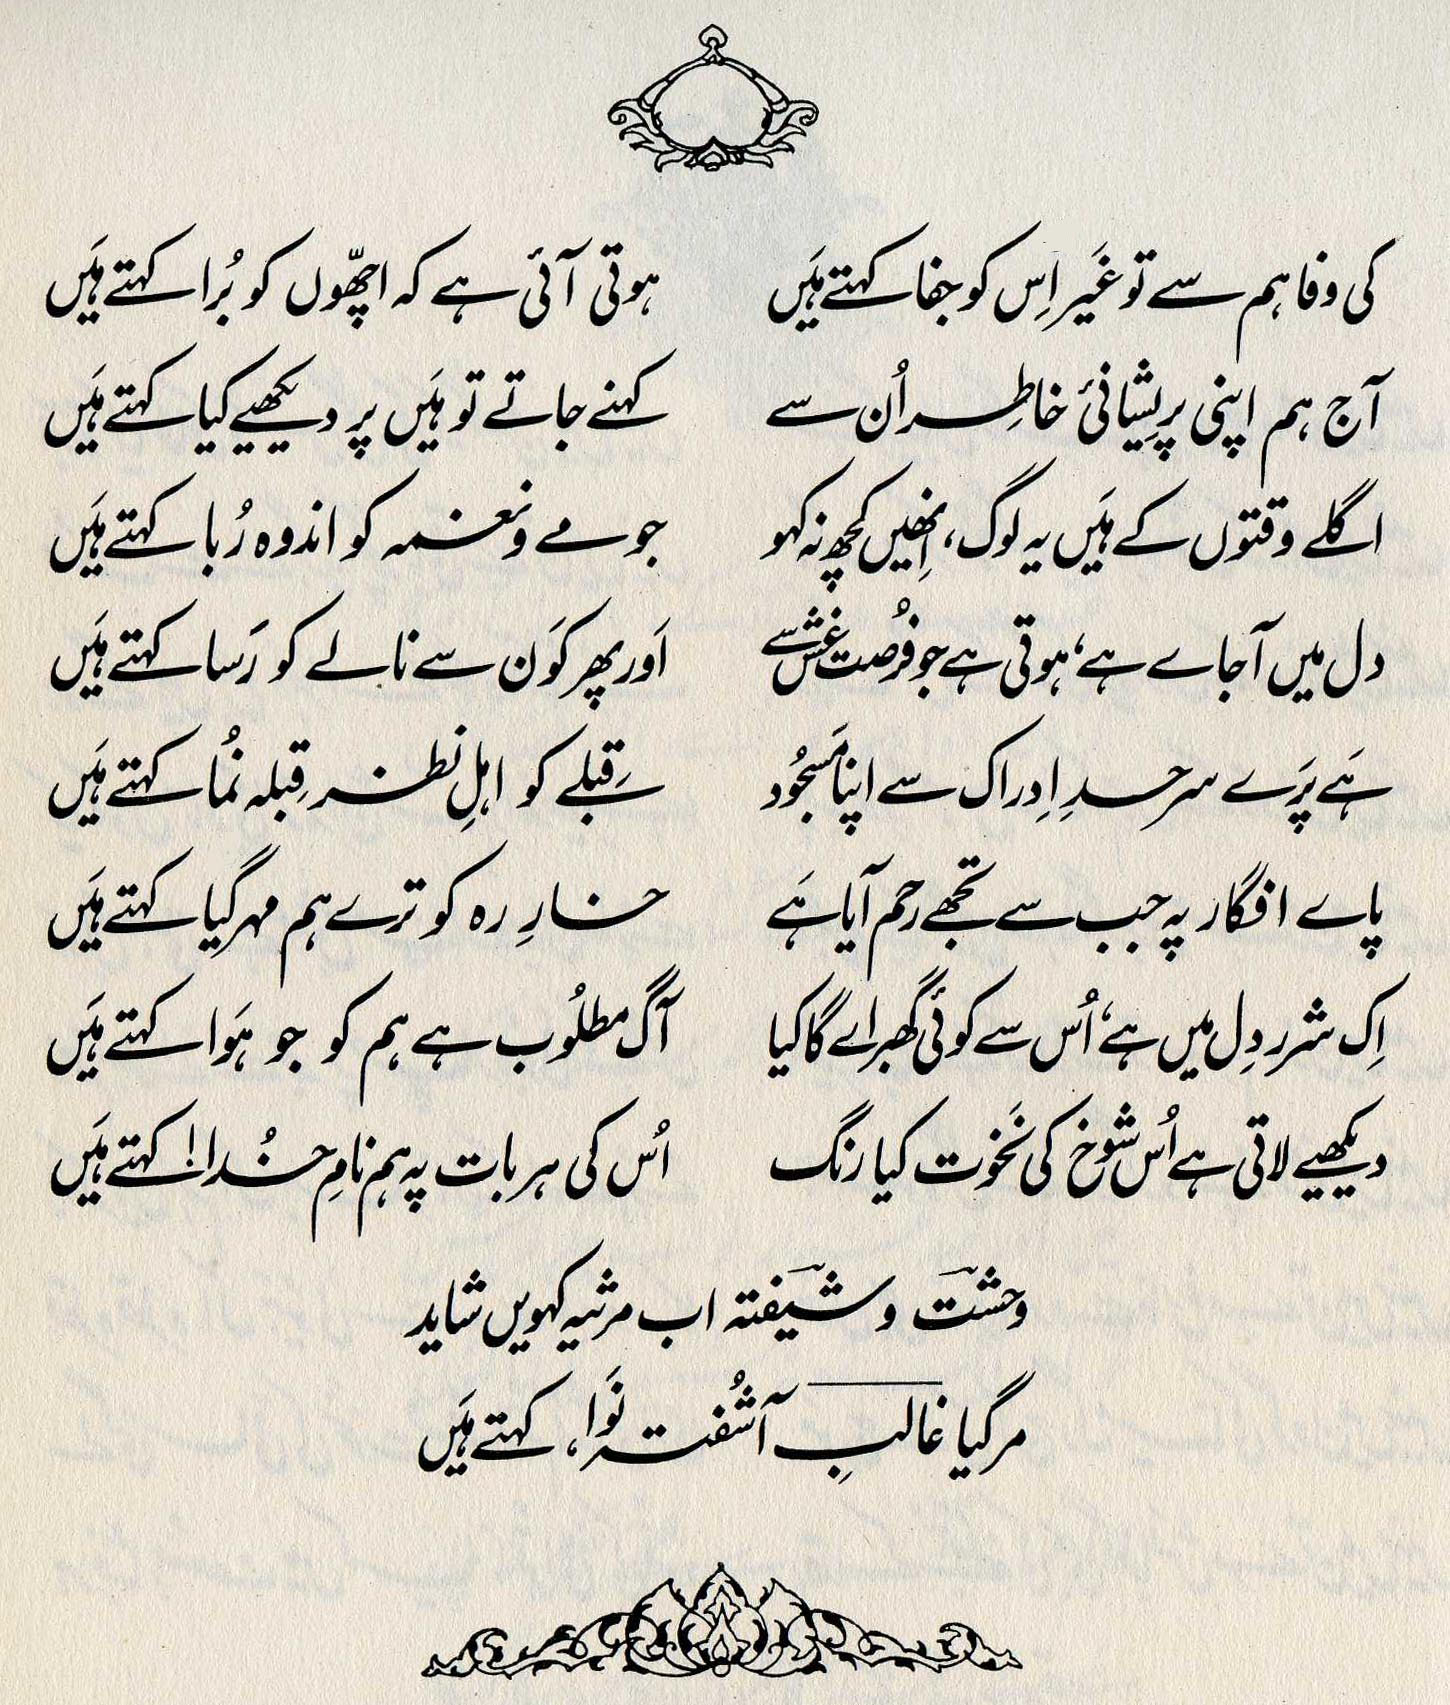 کی وفا ہم سے تو غَیر اِس کو جفا کہتے ہَیں
ہوتی آئی ہے کہ اچھّوں کو بُرا کہتے ہَیں
آج ہم اپنی پریشِانیٔ خاطِر اُن سے
کہنے جاتے تو ہَیں پر دیکھیے کیا کہتے ہَیں
اگلے وقتوں کے ہَیں یہ لوگ، اِنھیں کچھ نہ کہو
جو مے و نغمہ کو اندوہ رُبا کہتے ہَیں
دل میں آجاے ہے، ہوتی ہے جو فُرصت غش سے
اَور پھر کَون سے نالے کو رَسا کہتے ہَیں
ہَے پَرے سرحدِ اِدراک سے اپنا مَسجُود
قِبلے کو اہلِ نظر قِبلہ نُما کہتے ہَیں
پاے افگار پہ جب سے تجھے رحم آیا ہَے
خارِ رہ کو ترے ہم مہر گیا کہتے ہَیں
اِک شرر دِل میں ہے، اُس سے کوئی گھبراے گا کیا
آگ مطلُوب ہے ہم کو جو ہَوا کہتے ہَیں
دیکھیے لاتی ہے اُس شوخ کی نَخوت کیا رنگ
اُس کی ہر بات پہ ہم نامِ خُدا! کہتے ہَیں
وحشت و شیفتہ اب مرثیہ کہویں شاید
مر گیا غالبِ آشُفتہ نَوا، کہتے ہَیں